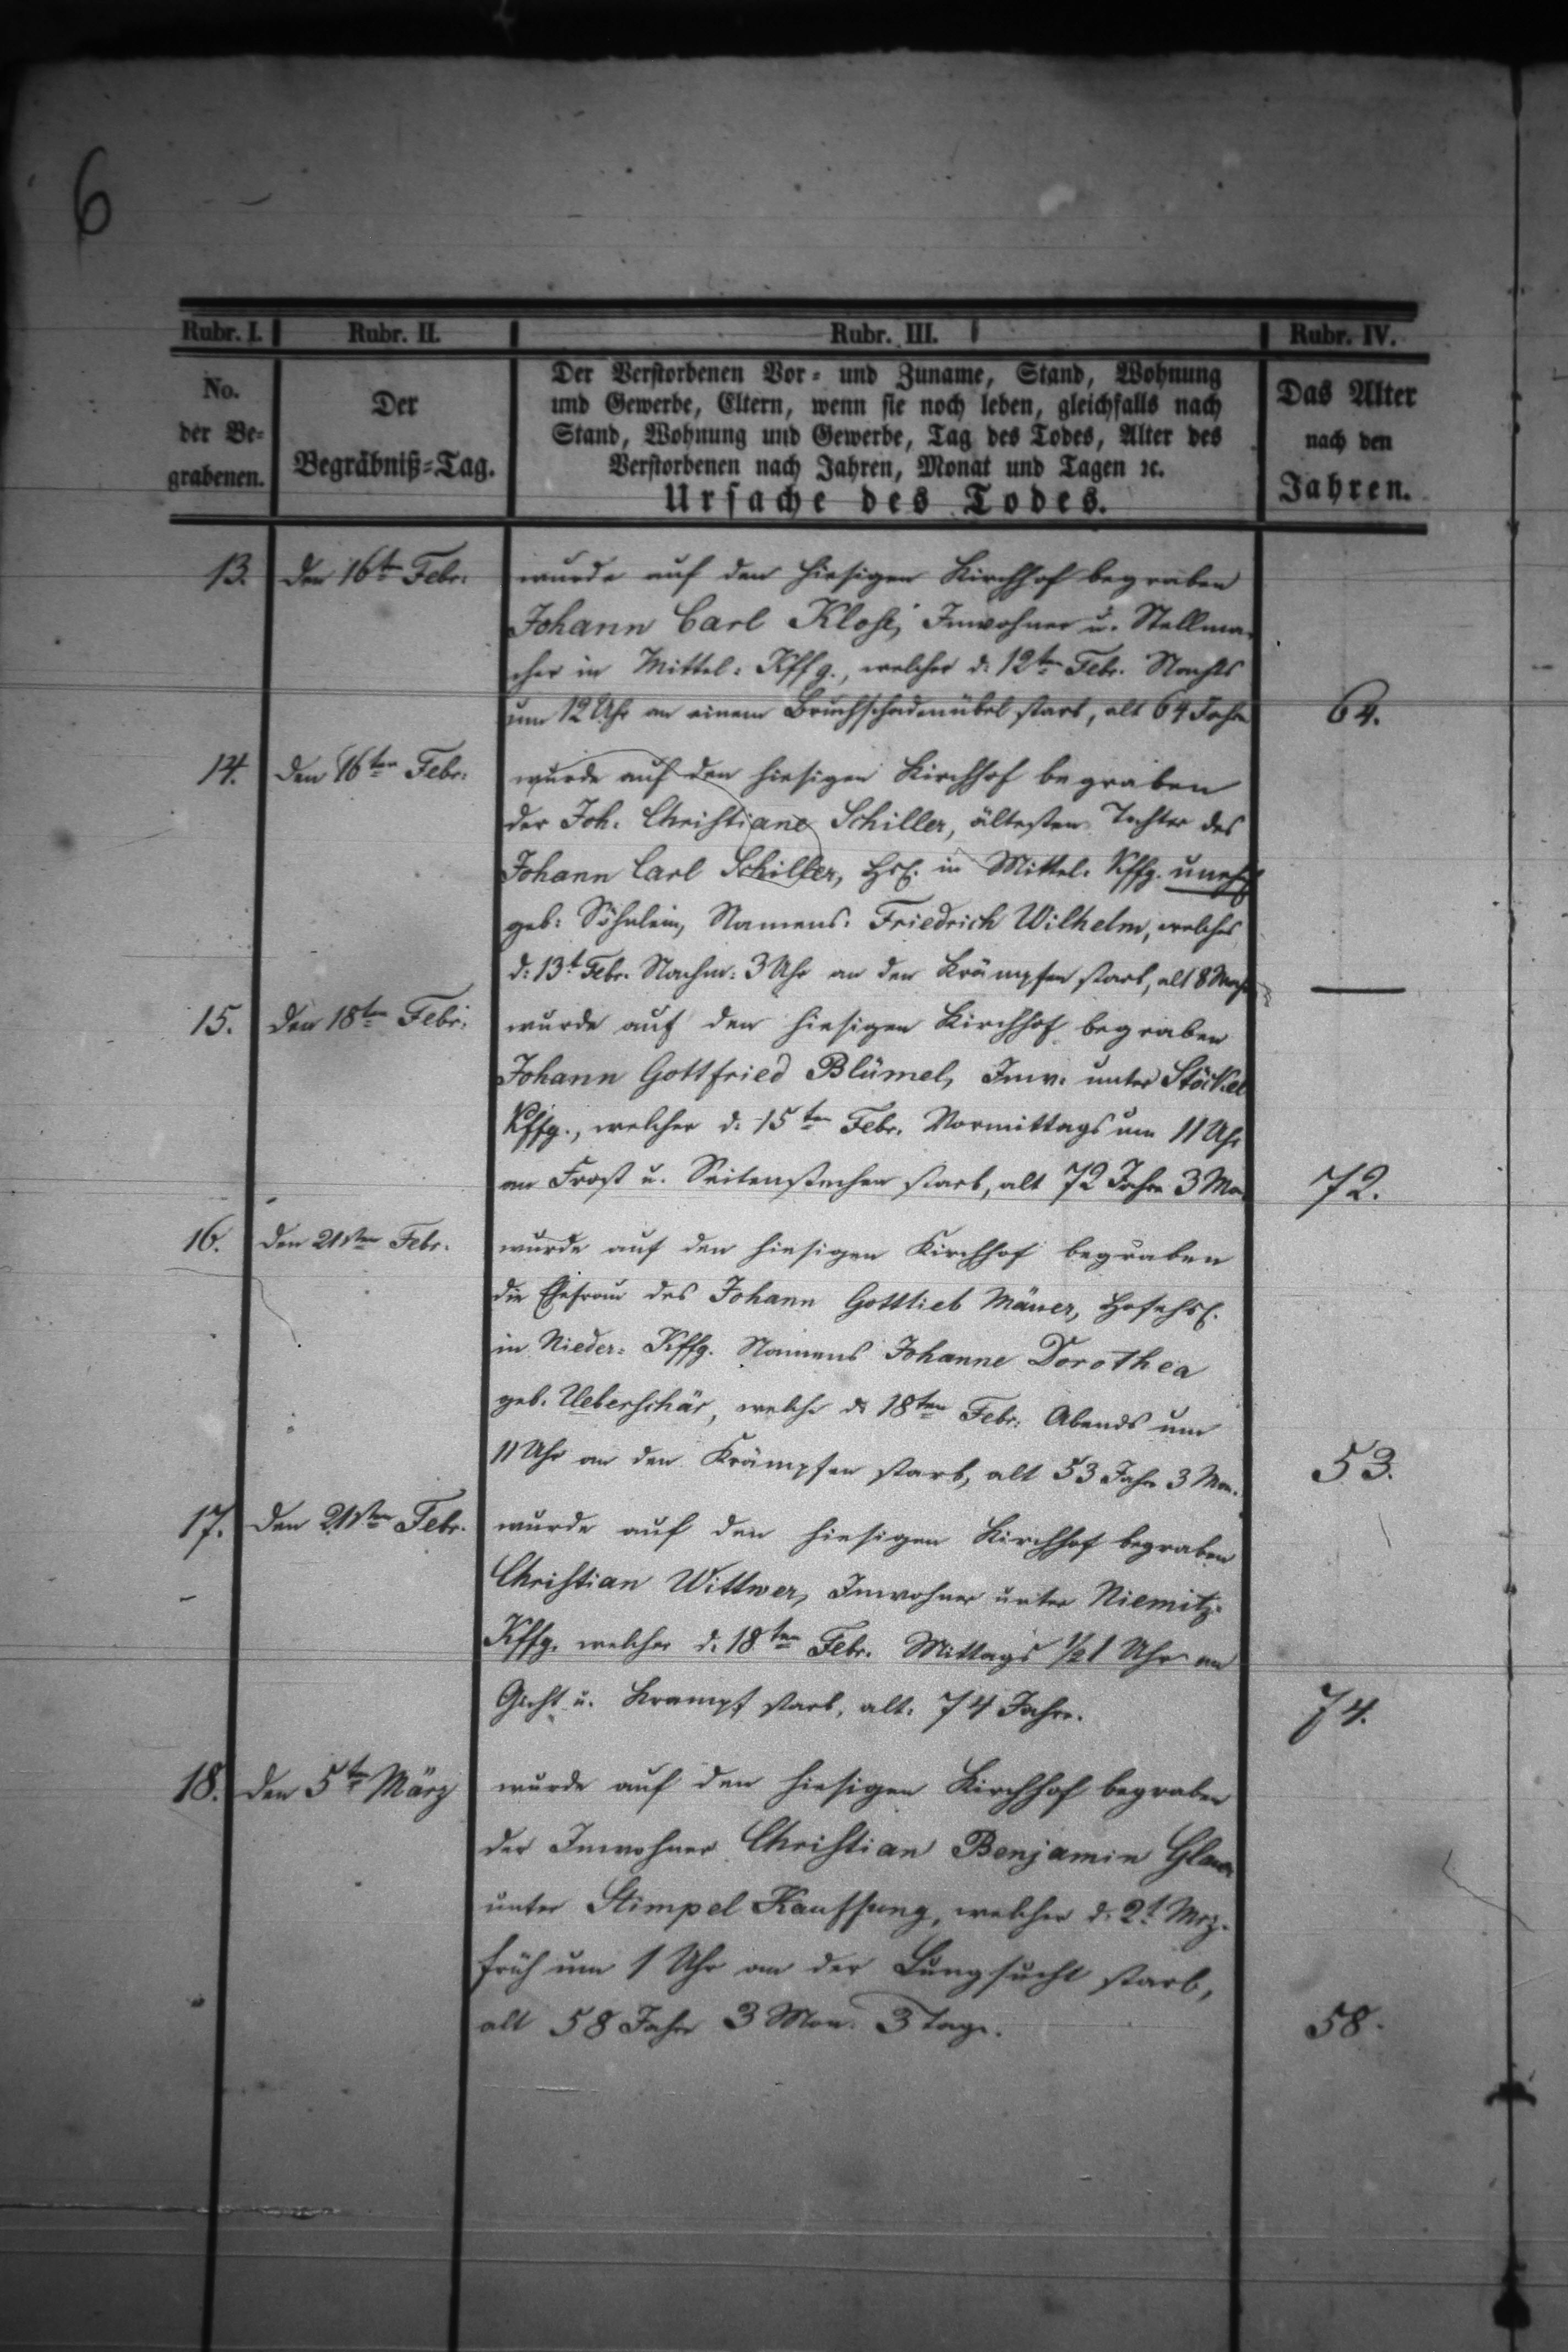 6
Rubr. I. Rubr. II. Rubr. III. Rubr. IV.
No. der Begrabenen.
Der Begräbniß-Tag.
Der Verstorbenen Vor- und Zuname, Stand, Wohnung
und Gewerbe, Eltern, wenn sie noch leben, gleichfalls nach
Stand, Wohnung und Gewerbe, Tag des Todes, Alter des
Verstorbenen nach Jahren, Monat und Tagen ꝛc.
Ursache des Todes.
Das Alter
nach den
Jahren.
13. Den 16ten Febr. wurde auf den hiesigen Kirchhof begraben
Johann Carl Klose, Inwohner u. Stellma-
cher in Mittel-Kffg., welcher d. 12ten Febr. Nachts
um 12 Uhr an einem Bruchschadenübel starb, alt 64 Jahre 64.
14. Den 16ten Febr. wurde auf den hiesigen Kirchhof begraben
der Joh. Christiane Schiller, ältesten Tochter des
Johann Carl Schiller, Hsl. in Mittel-Kffg. unehl
geb. Söhnlein, Namens: Friedrich Wilhelm, welches
d. 13t Febr. Nachm. 3 Uhr an den Krämpfen starb, alt 8 Woch —
15. Den 18ten Febr. wurde auf den hiesigen Kirchhof begraben
Johann Gottfried Blümel, Inw. unter Stöckel
Kffg., welcher d. 15ten Febr. Vormittags um 11 Uhr
an Frost u. Seitenstechen starb, alt 72 Jahre 3 Mo. 72.
16. Den 21sten Febr. wurde auf den hiesigen Kirchhof begraben
die Ehefrau des Johann Gottlieb Mäuer, Hofehsl.
in Nieder-Kffg. Namens Johanne Dorothea
geb. Ueberschär, welche d. 18ten Febr. Abends um
11 Uhr an den Krämpfen starb, alt 53 Jahr 3 Mon. 53.
17. Den 21sten Febr. wurde auf den hiesigen Kirchhof begraben
Christian Wittwer, Inwohner unter Niemitz-
Kffg. welcher d. 18ten Febr. Mittags 1/2 1 Uhr an
Gicht u. Krampf starb, alt. 74 Jahre. 74.
18. Den 5ten März wurde auf den hiesigen Kirchhof begraben
der Inwohner Christian Benjamin
unter Stimpel Kauffung, welcher d. 2t Mrz.
früh um 1 Uhr an der Lungsucht starb,
alt 58 Jahr 3 Mon. 3 Tage. 58.